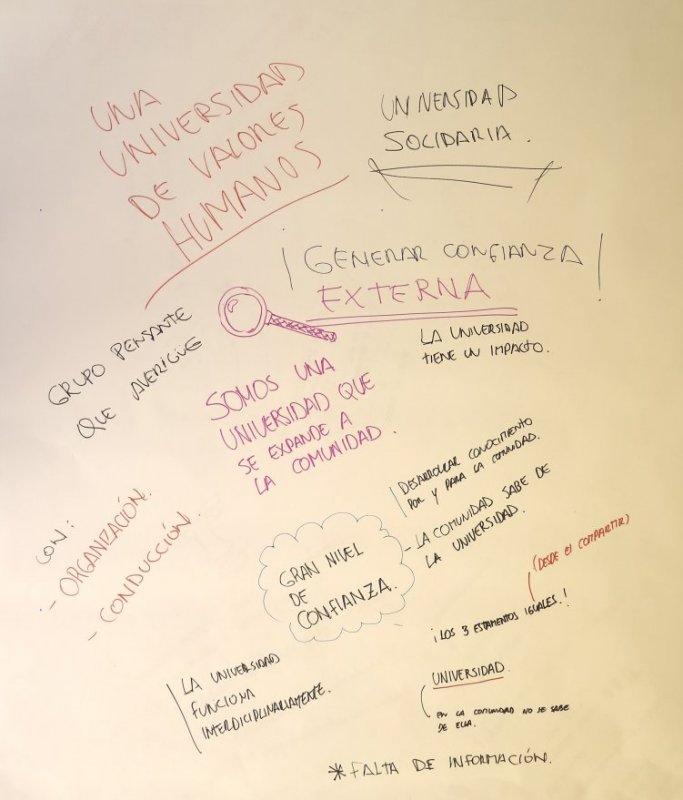 UNA
UNIVERSIDAD
DE VALORES
HUMANOS
UNIVERSIDAD
SOLIDARIA.
GENERAR CONFIANZA
EXTERNA
LA UNIVERSIDAD
TIENE UN IMPACTO.
GRUPO PENSANTE
QUE AVERIGÜE
SOMOS UNA
UNIVERSIDAD QUE
SE EXPANDE A
LA COMUNIDAD.
DESARROLLAR CONOCIMIENTO
POR Y PARA LA COMUNIDAD.
- LA COMUNIDAD SABE DE
LA UNIVERSIDAD.
CON:
- ORGANIZACIÓN.
- CONDUCCIÓN.
GRAN NIVEL
DE
CONFIANZA.
(DESDE EL COMPARTIR)
¡LOS 3 ESTAMENTOS IGUALES!
LA UNIVERSIDAD
FUNCIONA
INTERDICIPLINARIAMENTE.
UNIVERSIDAD.
EN LA COMUNIDAD NO SE SABE
DE ELLA.
* FALTA DE INFORMACIÓN.